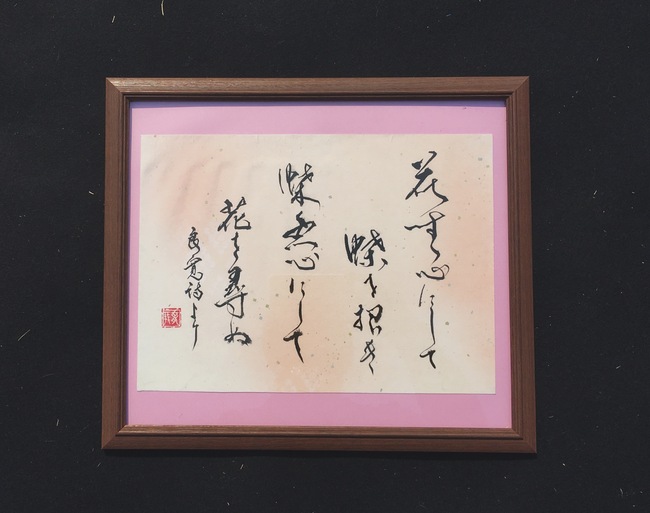 花無心にして
蝶を招き
蝶無心にして
花を尋ぬ
良寛詩より